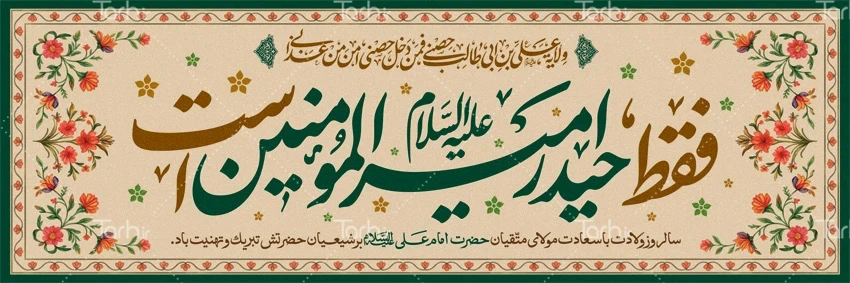 ولایة علی بن ابی طالب حصنی فمن دخل حصنی امن من عذابی
فقط حیدر امیرالمؤمنین علیه‌السلام است
سالروز ولادت با سعادت مولای متّقیان حضرت امام علی علیه‌السلام بر شیعیان حضرتش تبریک و تهنیت باد.